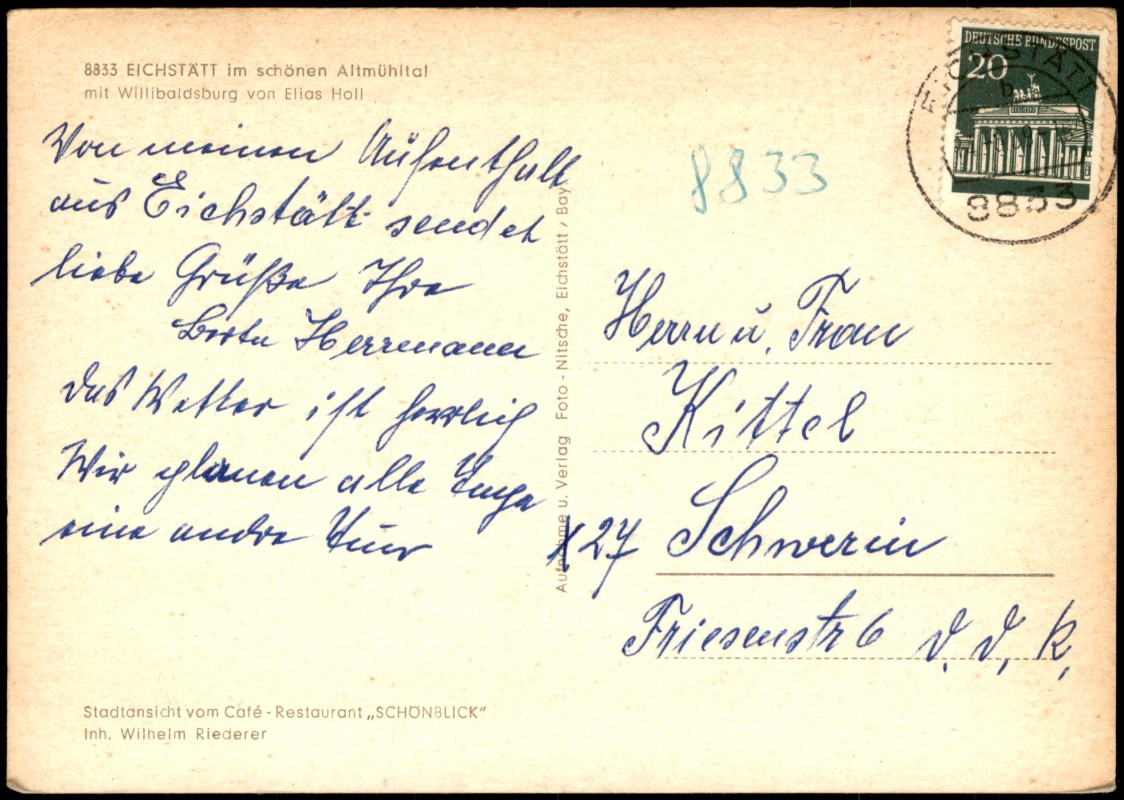 8833 EICHSTÄTT im schönen Altmühltal
mit Willibaldsburg von Elias Holl
Von meinen Aufenthalt
aus Eichstätt sendet
liebe Grüße Ihre
Berta Herrmann
das Wetter ist herrlich
Wir planen alle Tage
eine andre Tur
Stadtansicht vom Café-Restaurant „SCHÖNBLICK“
Inh. Wilhelm Riederer
Aufnahme u. Verlag Foto-Nitsche, Eichstätt / Bay
DEUTSCHE BUNDESPOST
20
EICHSTÄTT
b
8833
8833
Herrn u. Frau
Kittel
X 27 Schwerin
Friesenstr 6 d. d. R.